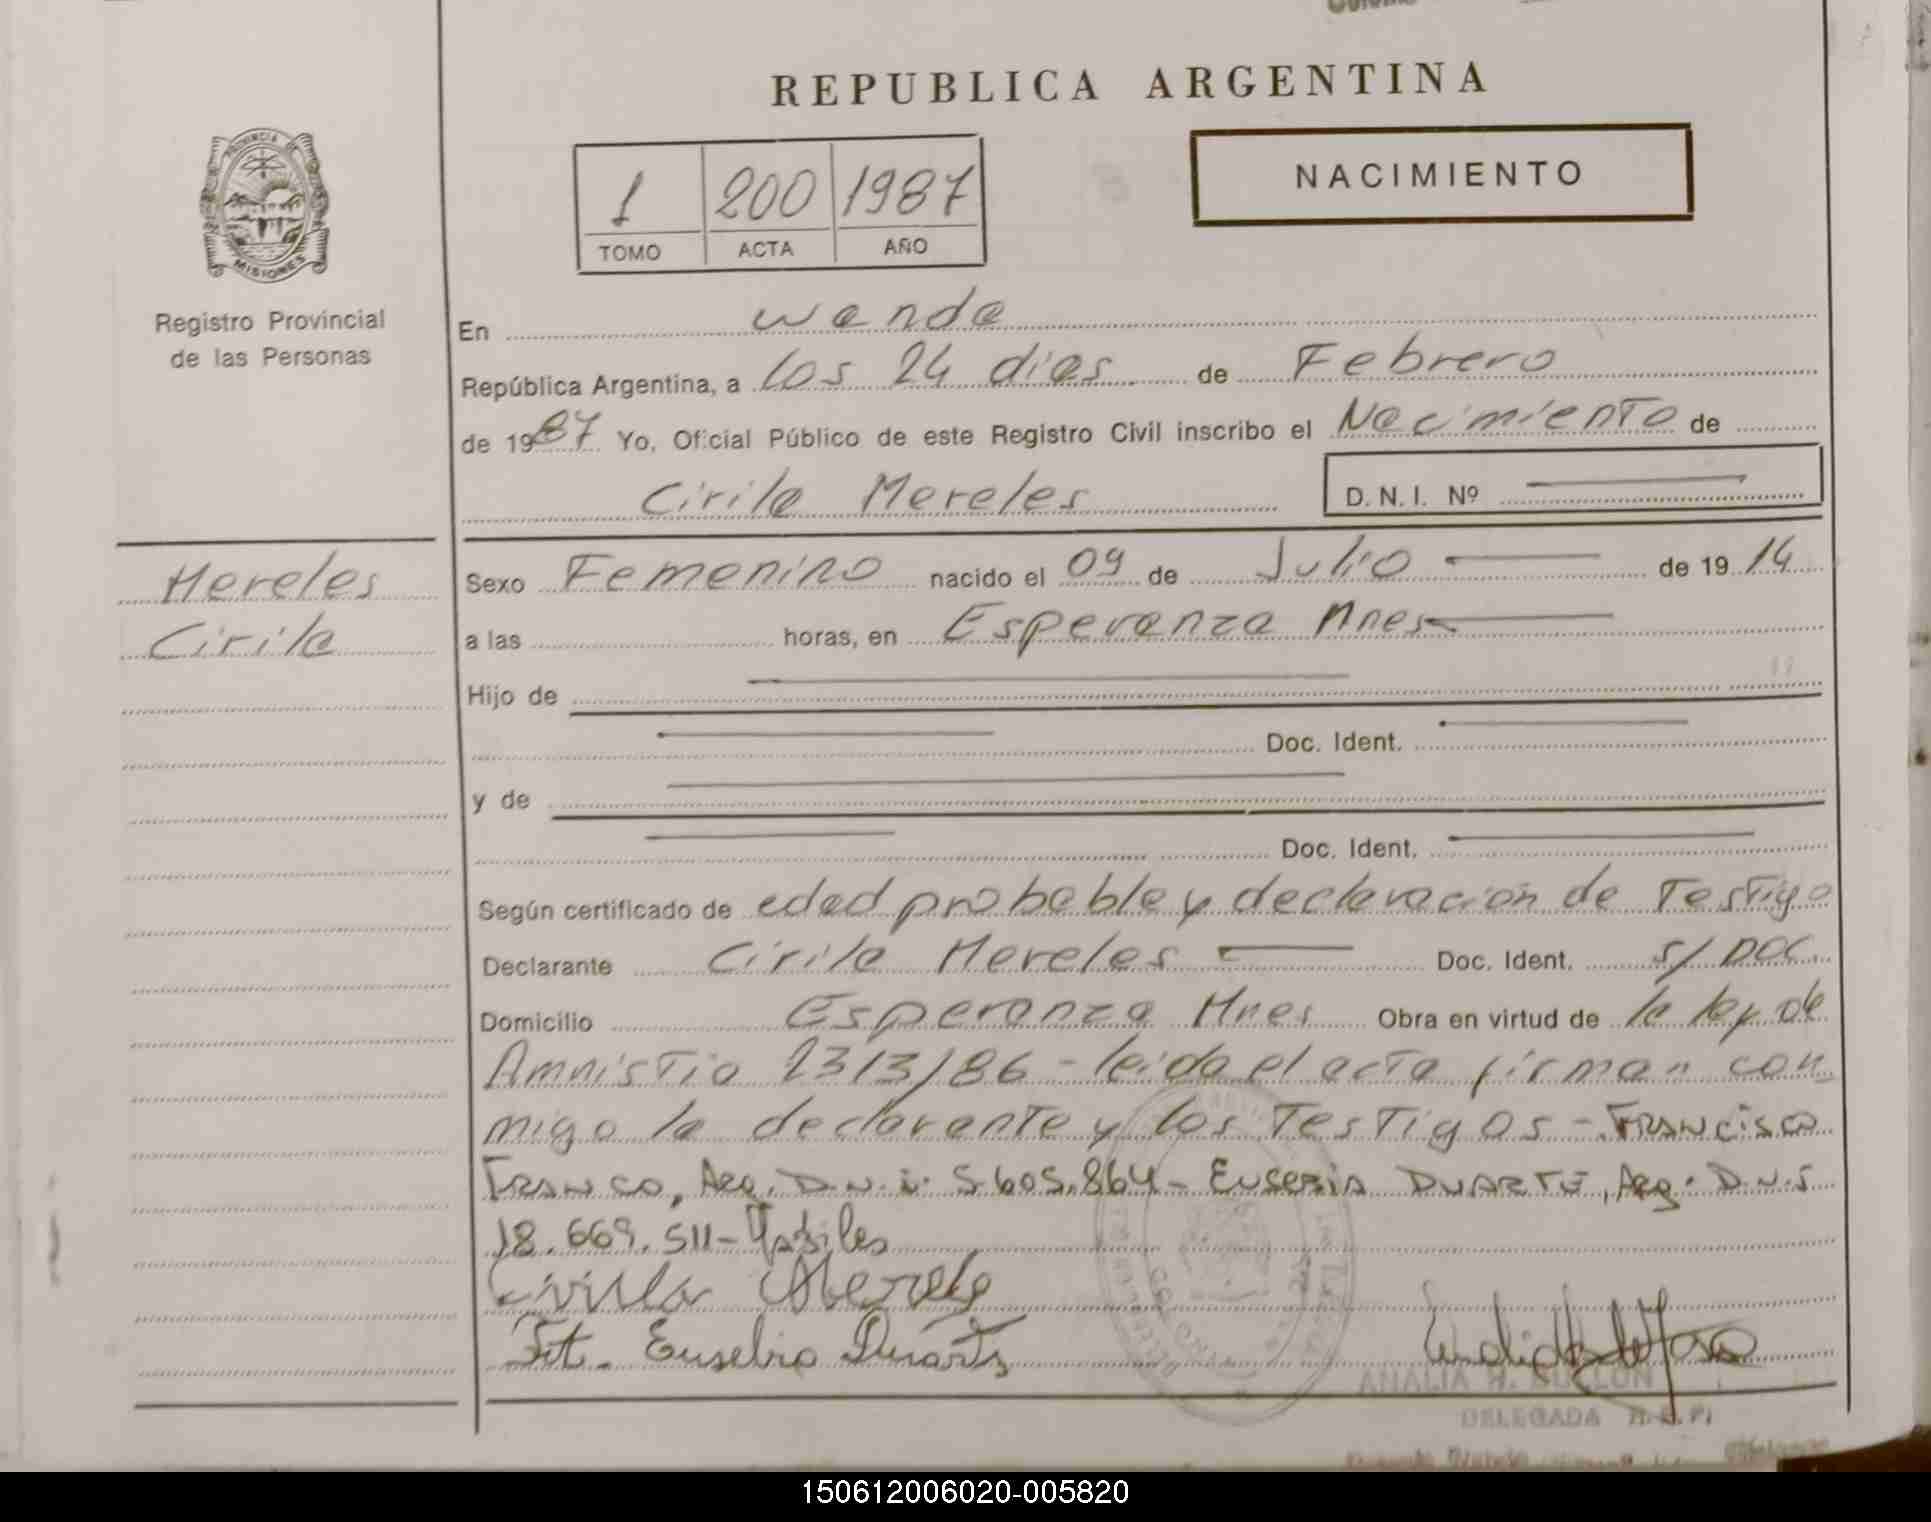 REPUBLICA ARGENTINA
NACIMIENTO
1 200 1987
TOMO ACTA AÑO
PROVINCIA DE
MISIONES
Registro Provincial
de las Personas
En Wanda
República Argentina, a los 24 dias de Febrero
de 1987 Yo, Oficial Público de este Registro Civil inscribo el Nacimiento de
Cirila Mereles D.N.I. Nº
Mereles
Cirila
Sexo Femenino nacido el 09 de Julio de 1914
a las horas, en Esperanza Mnes
Hijo de
Doc. Ident.
y de
Doc. Ident.
Según certificado de edad probable y declaración de Testigo
Declarante Cirila Mereles Doc. Ident. s/ DOC.
Domicilio Esperanza Mnes Obra en virtud de la ley de
Amnistia 2313/86 - leida el acta firman con
migo la declarante y los Testigos - FRANCISCO
FRANCO, Arg. D.N.I. 5.605.864 - EUSEBIA DUARTE, Arg. D.N.I
18.669.511 -
Cirila Mereles
Fdo. Eusebia Duarte
ANALIA H.
DELEGADA R.P.P.
150612006020-005820